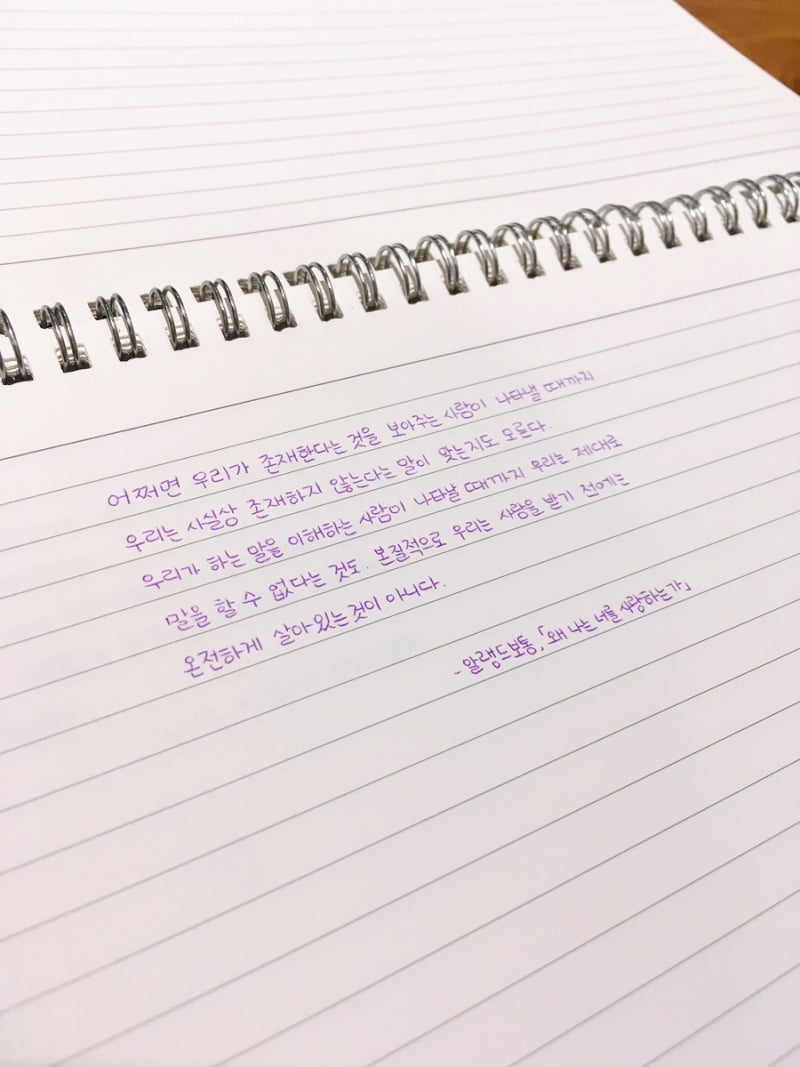 어쩌면 우리가 존재한다는 것을 보아주는 사람이 나타낼 때까지
우리는 사실상 존재하지 않는다는 말이 맞는지도 모른다.
우리가 하는 말을 이해하는 사람이 나타날 때까지 우리는 제대로
말을 할 수 없다는 것도. 본질적으로 우리는 사랑을 받기 전에는
온전하게 살아있는것이 아니다.
- 알랭드보통, 「왜 나는 너를 사랑하는가」